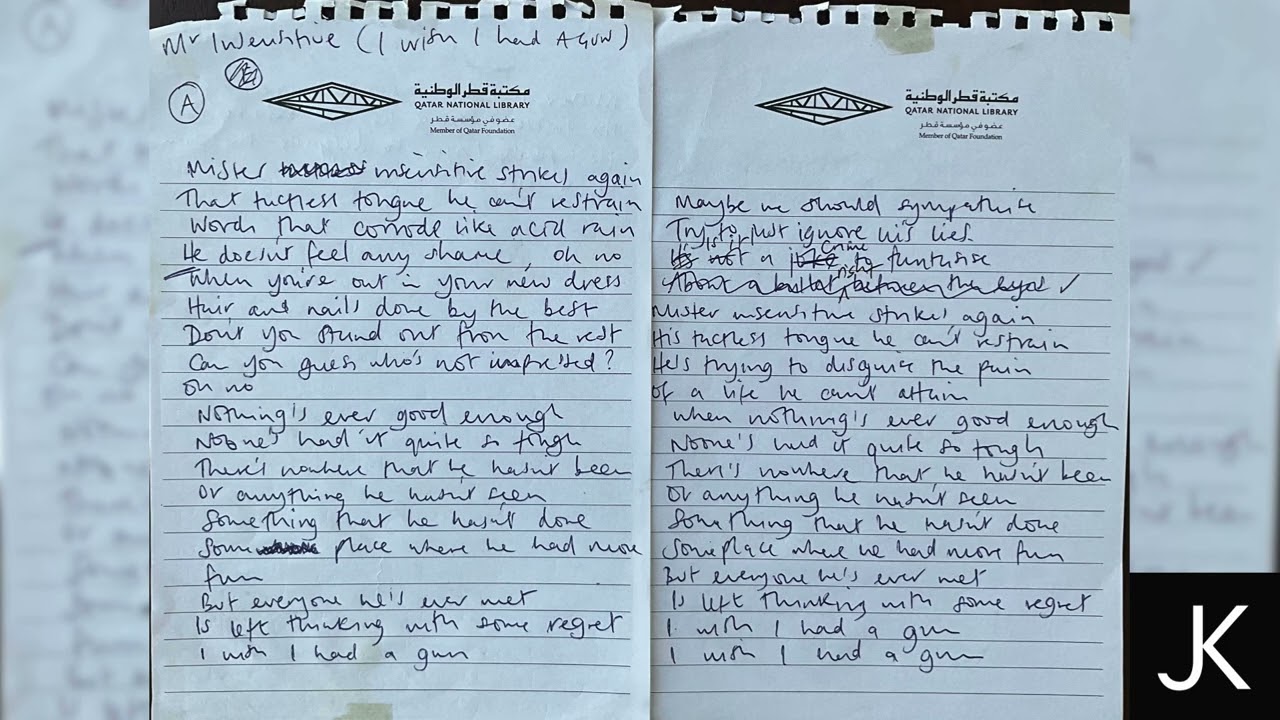 Mr Insensitive (I wish I had A GUN)
A
مكتبة قطر الوطنية
QATAR NATIONAL LIBRARY
عضو في مؤسسة قطر
Member of Qatar Foundation
Mister insensitive strikes again
That tactless tongue he can't restrain
Words that corrode like acid rain
He doesn't feel any shame, oh no
When you're out in your new dress
Hair and nails done by the best
Don't you stand out from the rest
Can you guess who's not impressed?
oh no
Nothing's ever good enough
Noone's had it quite so tough
There's nowhere that he hasn't been
Or anything he hasn't seen
Something that he hasn't done
Some place where he had more
fun
But everyone he's ever met
Is left thinking with some regret
I wish I had a gun
مكتبة قطر الوطنية
QATAR NATIONAL LIBRARY
عضو في مؤسسة قطر
Member of Qatar Foundation
Maybe we should sympathise
Try to just ignore his lies.
is it a crime to fantasise
About a bullet right between the eyes ✓
Mister insensitive strikes again
His tactless tongue he can't restrain
He's trying to disguise the pain
of a life he can't attain
When nothing's ever good enough
Noone's had it quite so tough
There's nowhere that he hasn't been
Or anything he hasn't seen
Something that he hasn't done
Someplace where he had more fun
But everyone he's ever met
Is left thinking with some regret
I wish I had a gun
I wish I had a gun
JK